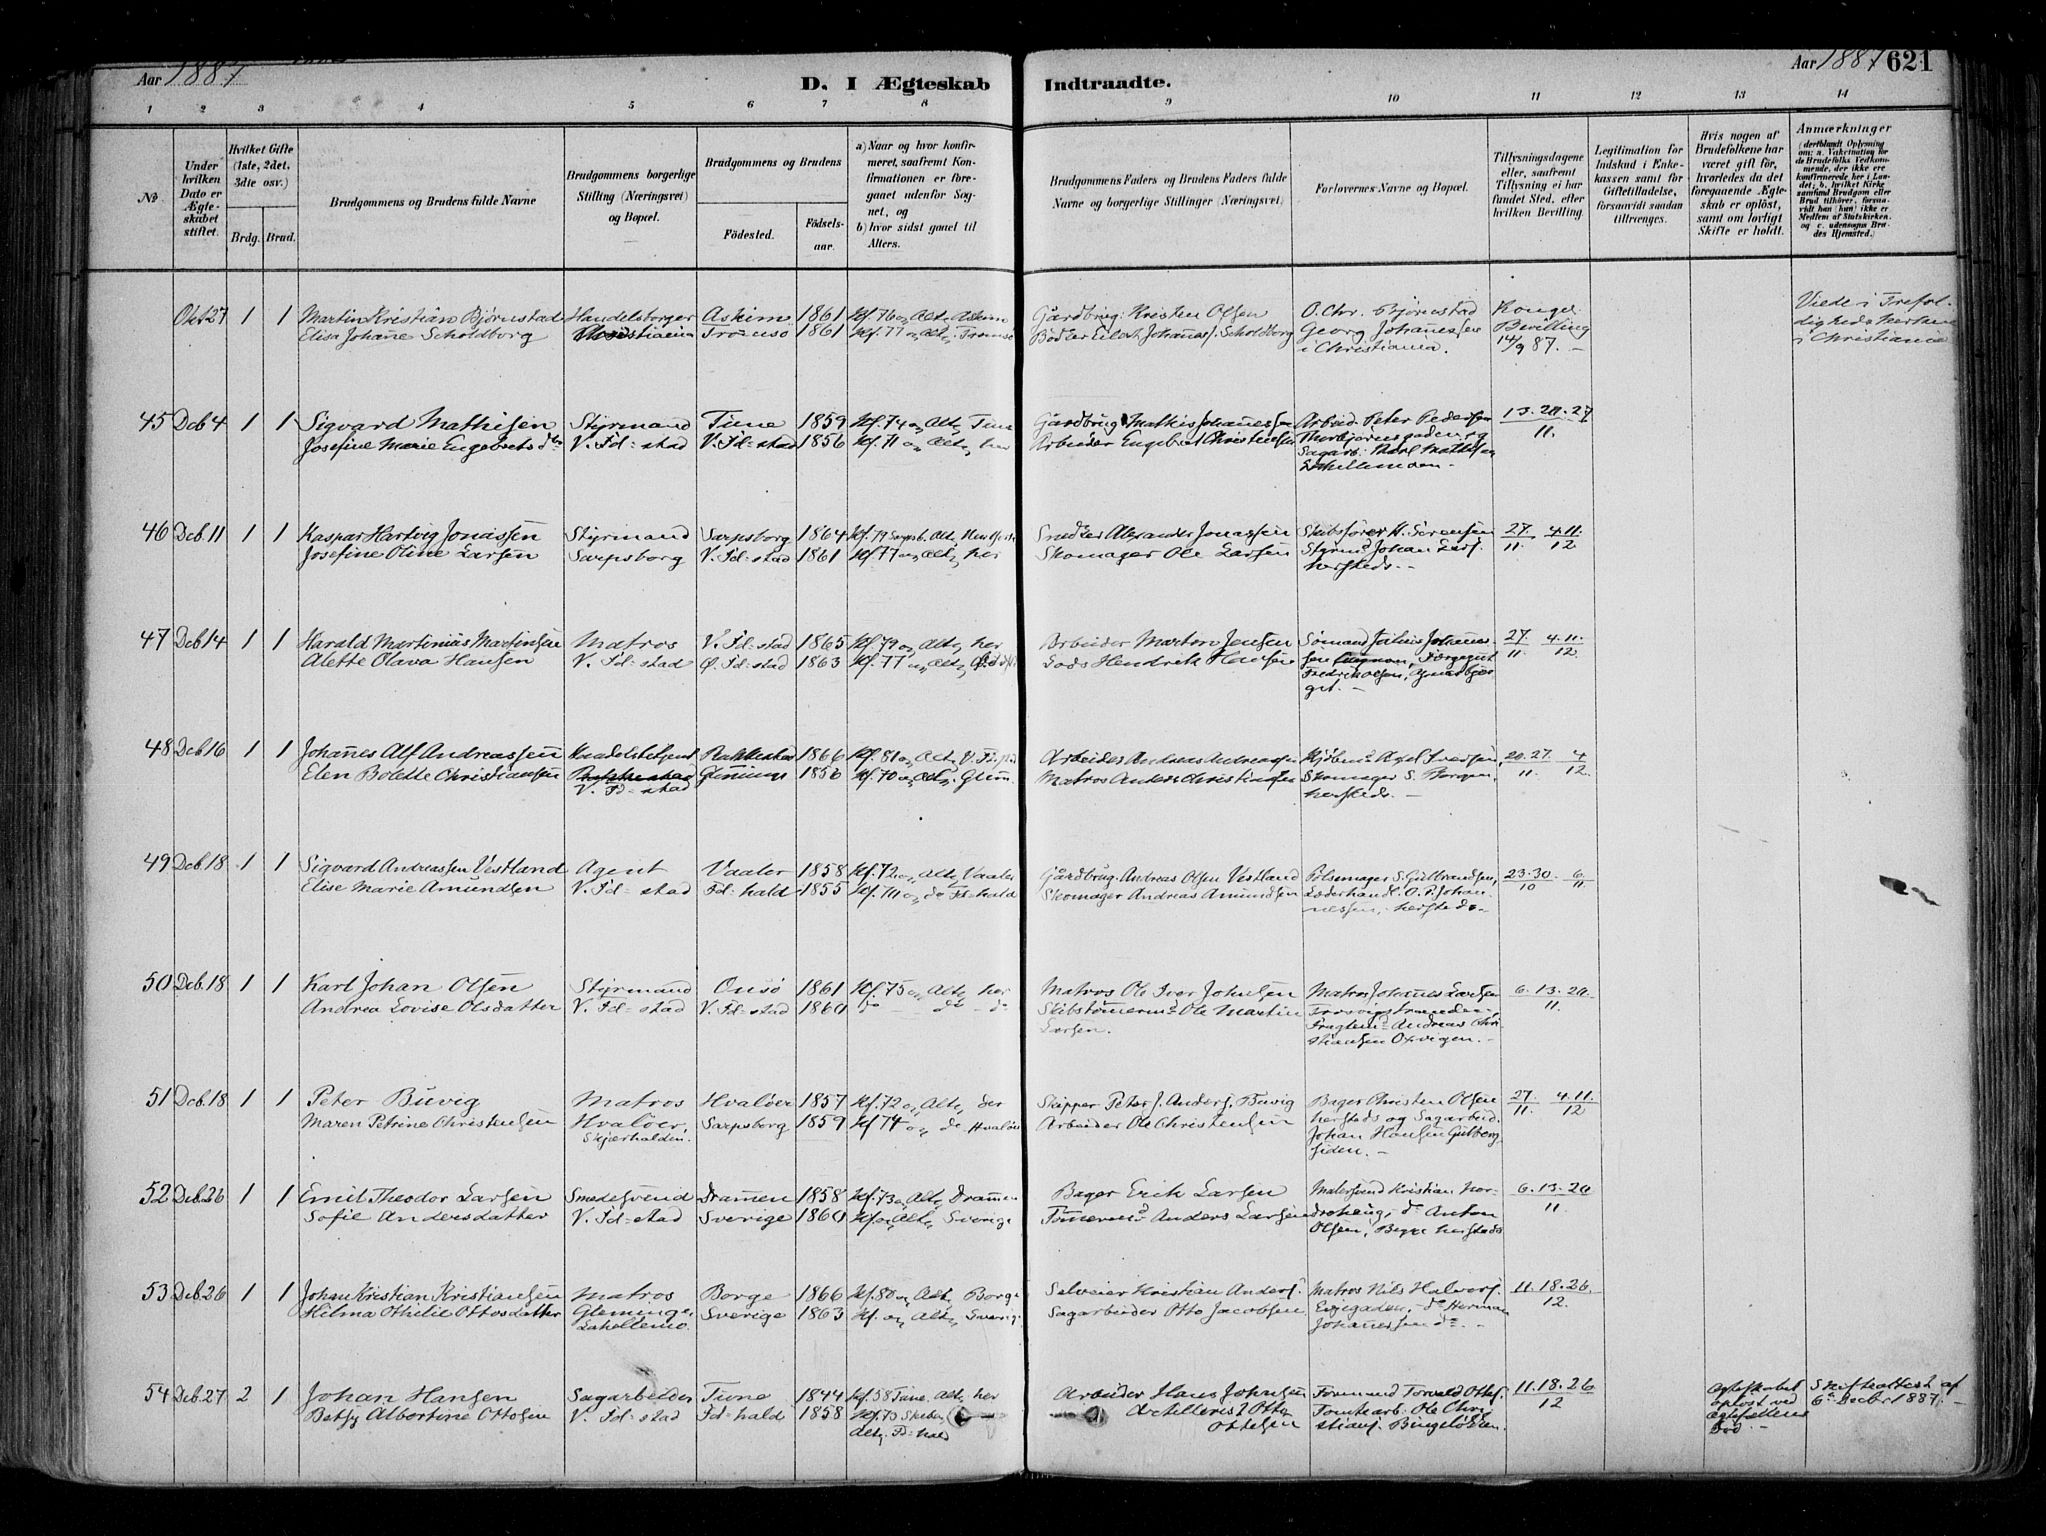 Aar 1887
D. I Ægteskab Indtraadte.
Aar 1887 621
1 2 3 4 5 6 7 8 9 10 11 12 13 14
No
Under hvilken Dato er Ægteskabet stiftet.
Hvilket Gifte (1ste, 2det, 3die osv.)
Brdg. Brud.
Brudgommens og Brudens fulde Navne
Brudgommens borgerlige Stilling (Næringsvei) og Bopæl.
Brudgommens og Brudens
Fødested. Fødselsaar.
a) Naar og hvor konfirmeret, saafremt Konfirmationen er foregaaet udenfor Sognet, og
b) hvor sidst gaaet til Alters.
Brudgommens Faders og Brudens Faders fulde Navne og borgerlige Stillinger (Næringsvei)
Forlovernes Navne og Bopæl.
Tillysningsdagene eller, saafremt Tillysning ei har fundet Sted, efter hvilken Bevilling.
Legitimation for Indskud i Enkekassen samt for Giftetilladelse, forsaavidt saadan tiltrænges.
Hvis nogen af Brudefolkene har været gift før, hvorledes da det foregaaende Ægteskab er opløst, samt om lovligt Skifte er holdt.
Anmærkninger
Okt 27 1 1 Martin Kristian Bjørnstad Handelsborger Askim 1861 Kf. 76 og Alt. Askim Gårdbrug. Kristen Olsen O. Chr. Bjørnstad Kongel. Viede i Trefol-
Elisa Johane Scholdborg Christiania Tromsø 1861 Kf. 77 og Alt. Tromsø Bødker Eilert Johannes J. Scholdborg Georg Johanessen Bevilling digheds kirken
i Christiania. 14/9 87. — i Christiania
45 Dcb 4 1 1 Sigvard Mathisen Styrmand Tune 1859 Kf. 74 og Alt. Tune Gårdbrug. Mathis Johanessen Arbeid. Peter Pedersen 13. 20. 27
Josefine Marie Engebretsdtr V. Fd-stad V. Fd-stad 1856 Kf. 71 og Alt. her Arbeider Engebret Christensen Thorbjørnsgaden, og 11.
Sagarb. Karl Mathisen
46 Dcb. 11 1 1 Kaspar Hartvig Jonassen Styrmand Sarpsborg 1864 Kf. 79 Sarpsb. Alt. Snedker Alexander Jonassen Skibsfører H. Sørensen 27. 4. 11.
Josefine Oline Larsen Sarpsborg V. Fd-stad 1861 Kf. 77 og Alt. her Skomager Ole Larsen Styrmd Johan Lars. 11. 12
hersteds. -
47 Dcb 14 1 1 Harald Martinius Martinsen Matros V. Fd-stad 1865 Kf. 79 og Alt. her Arbeider Martin Jensen Sømand Julius Johannes- 27. 4. 11.
Alette Olava Hansen V. Fd-stad Ø. Fd-stad 1863 Kf. 77 og Alt. Lods Hendrik Hansen sen 11. 12
Fredrik Olsen,
48 Dcb. 16 1 1 Johanes Alf Andreassen Handelsbetjent Rakkestad 1866 Kf. 81 og Alt. V. Fd-stad Arbeider Andreas Andreassen Kjøbmd Axel Iversen, 20. 27. 4
Elen Bolette Christiansen V. Fd-stad Glemmen 1856 Kf. 70 og Alt. Glem. Matros Anders Christiansen Skomager S. Borgen, 11. 12.
hersteds. —
49 Dcb. 18 1 1 Sigvard Andreassen Vestland Agent Vaaler 1858 Kf. 72 og Alt. Vaaler Gårdbrug. Andreas Olsen Vestland Pølsemager S. Gulbrandsen, 23. 30. 6
Elise Marie Amundsen V. Fd-stad Fd-hald 1855 Kf. 71 og do Fd-hald Skomager Andreas Amundsen Læderhandl. O. P. Johan- 10 11
nessen, hersteds.
50 Dcb. 18 1 1 Karl Johan Olsen Styrmand Onsø 1861 Kf. 75 og Alt. her Matros Ole Iver Johnsen Matros Johanes Larsen 6. 13. 20.
Andrea Lovise Olsdatter V. Fd-stad V. Fd-stad 1860 do do do Skibstømermd Ole Martin Trosvigstranden, 11.
Larsen. Fragtemd Andreas Chri-
stiansen Oxvigen. —
51 Dcb. 18 1 1 Peter Buvig Matros Hvaløer 1857 Kf. 72 og Alt. der Skipper Peter J. Anders. Buvig Bager Christen Olsen 27. 4. 11.
Maren Petrine Christensen Hvaløer, Sarpsborg 1859 Kf 74 og do Hvaløer Arbeider Ole Christensen hersteds og Sagarbeid. 11. 12
Skjærhalden. Johan Hansen Gulberg-
siden. —
52 Dcb. 26 1 1 Emil Theodor Larsen Smedesvend Dramen 1858 Kf. 73 og Alt. Dramen Bager Erik Larsen Malersvend Kristian Nor- 6. 13. 20
Sofie Andersdatter V. Fd-stad Sverige 1860 Kf. og Alt. Sverige Tømermd Anders Larsen drehaug, do Anton 11.
Olsen, Begge hersteds
53 Dcb. 26 1 1 Johan Kristian Kristiansen Matros Borge 1866 Kf. 80 og Alt. Borge Selveier Kristian Anders. Matros Nils Halvors. 11. 18. 26.
Hilma Othelie Ottosdatter Gleminge, Sverige 1863 Kf. og Alt. Sverige Sagarbeider Otto Jacobsen Evjegaden, do Herman 12.
Lahellemo. Johanessen do. -
54 Dcb. 27 2 1 Johan Hansen Sagarbeider Tune 1844 Kf. 58 Tune, Alt. her Arbeider Hans Johnsen Formand Torvald Ottes. 11. 18. 26 Ægteskabet Skifteattest af
Betsy Albertine Ottosen V. Fd-stad Fd-hald 1858 Kf. 73 Artillerist Otto Tomtearb. Ole Chri- 12 opløst ved 6te Decbr 1887. —
Alt. Fd-hald Ottesen stians. Ægtefællens
Død. —